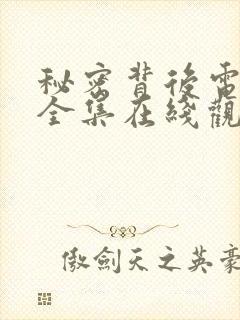 秘密背後電
全集在綫觀
傲劍天之英豪